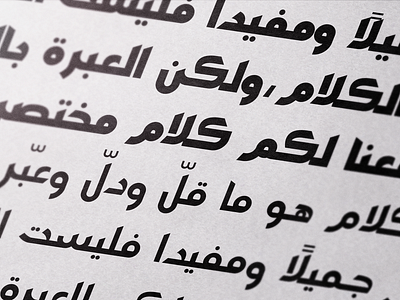 ميلًا ومفيدا فليست
الكلام ,ولكن العبرة بال
عنا لكم كلام مختص
كلام هو ما قلّ ودلّ وعبّر
جميلًا ومفيدا فليست ا
العبرة